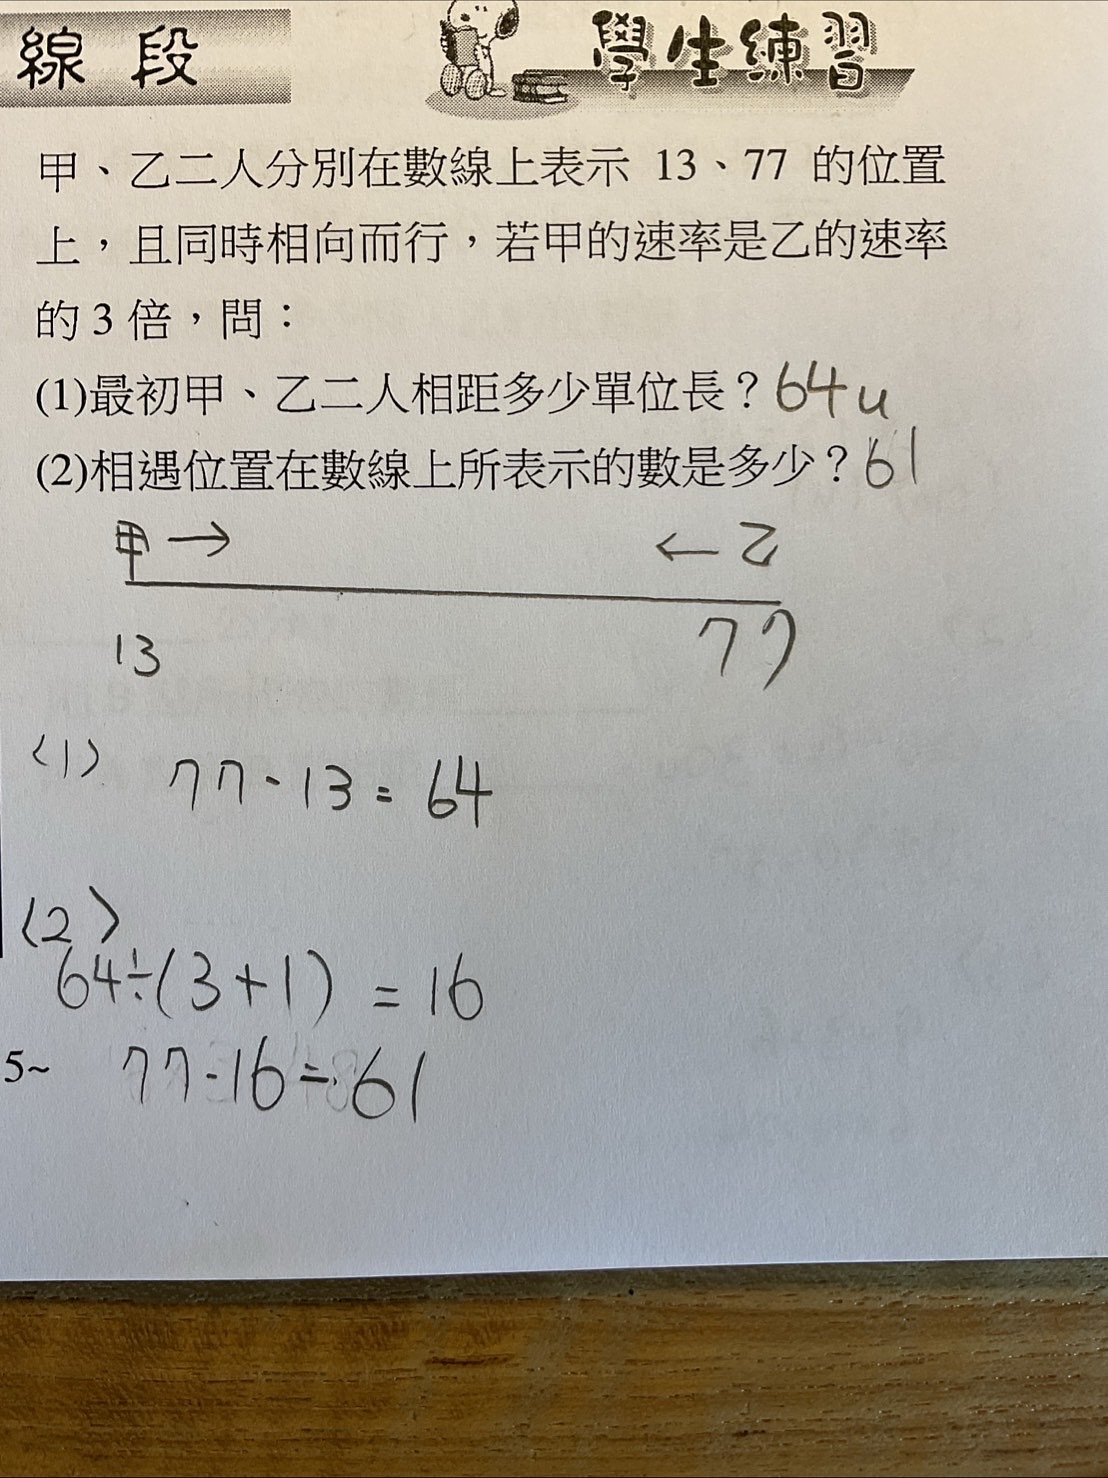 線段 學生練習
甲、乙二人分別在數線上表示 13、77 的位置
上，且同時相向而行，若甲的速率是乙的速率
的 3 倍，問：
(1)最初甲、乙二人相距多少單位長？64u
(2)相遇位置在數線上所表示的數是多少？61
甲→ ←乙
13 77
〈1〉 77-13=64
〈2〉
64÷(3+1)=16
5~ 77-16=61